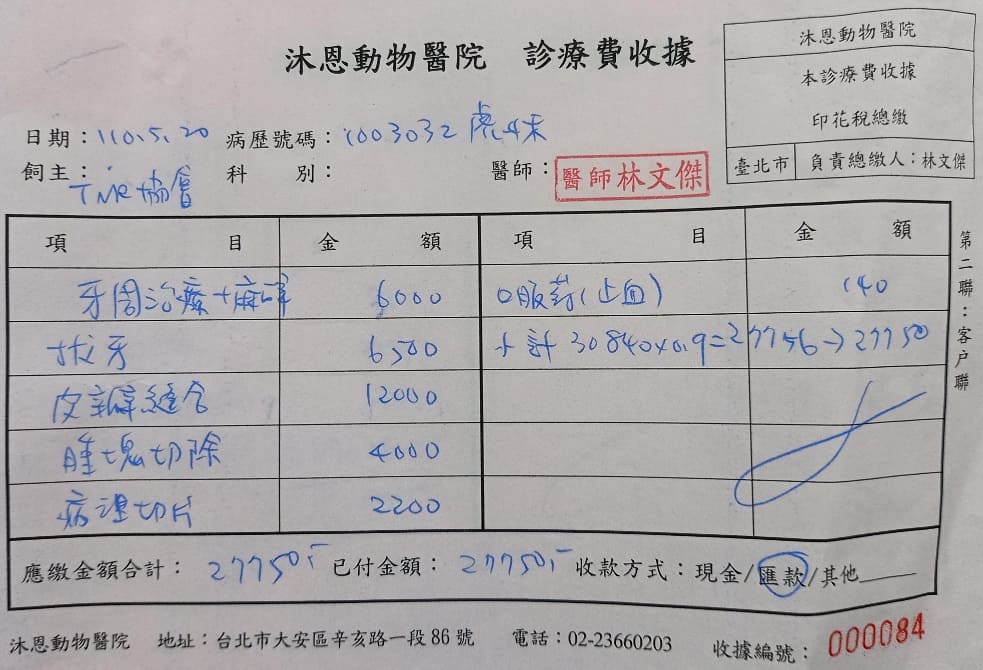 沐恩動物醫院 診療費收據
沐恩動物醫院
本診療費收據
印花稅總繳
臺北市 負責總繳人：林文傑
日期：110.5.20 病歷號碼：1003032 虎妹
飼主：TNR協會 科 別： 醫師：醫師林文傑
項 目 金 額 項 目 金 額
牙周治療+麻醉 6000 口服葯(止血) 140
拔牙 6500 小計 30840x0.9=27756→27750
皮瓣縫合 12000
腫塊切除 4000
病理切片 2200
應繳金額合計：27750,- 已付金額：27750,- 收款方式：現金/匯款/其他
第二聯：客户聯
沐恩動物醫院 地址：台北市大安區辛亥路一段86號 電話：02-23660203 收據編號：000084